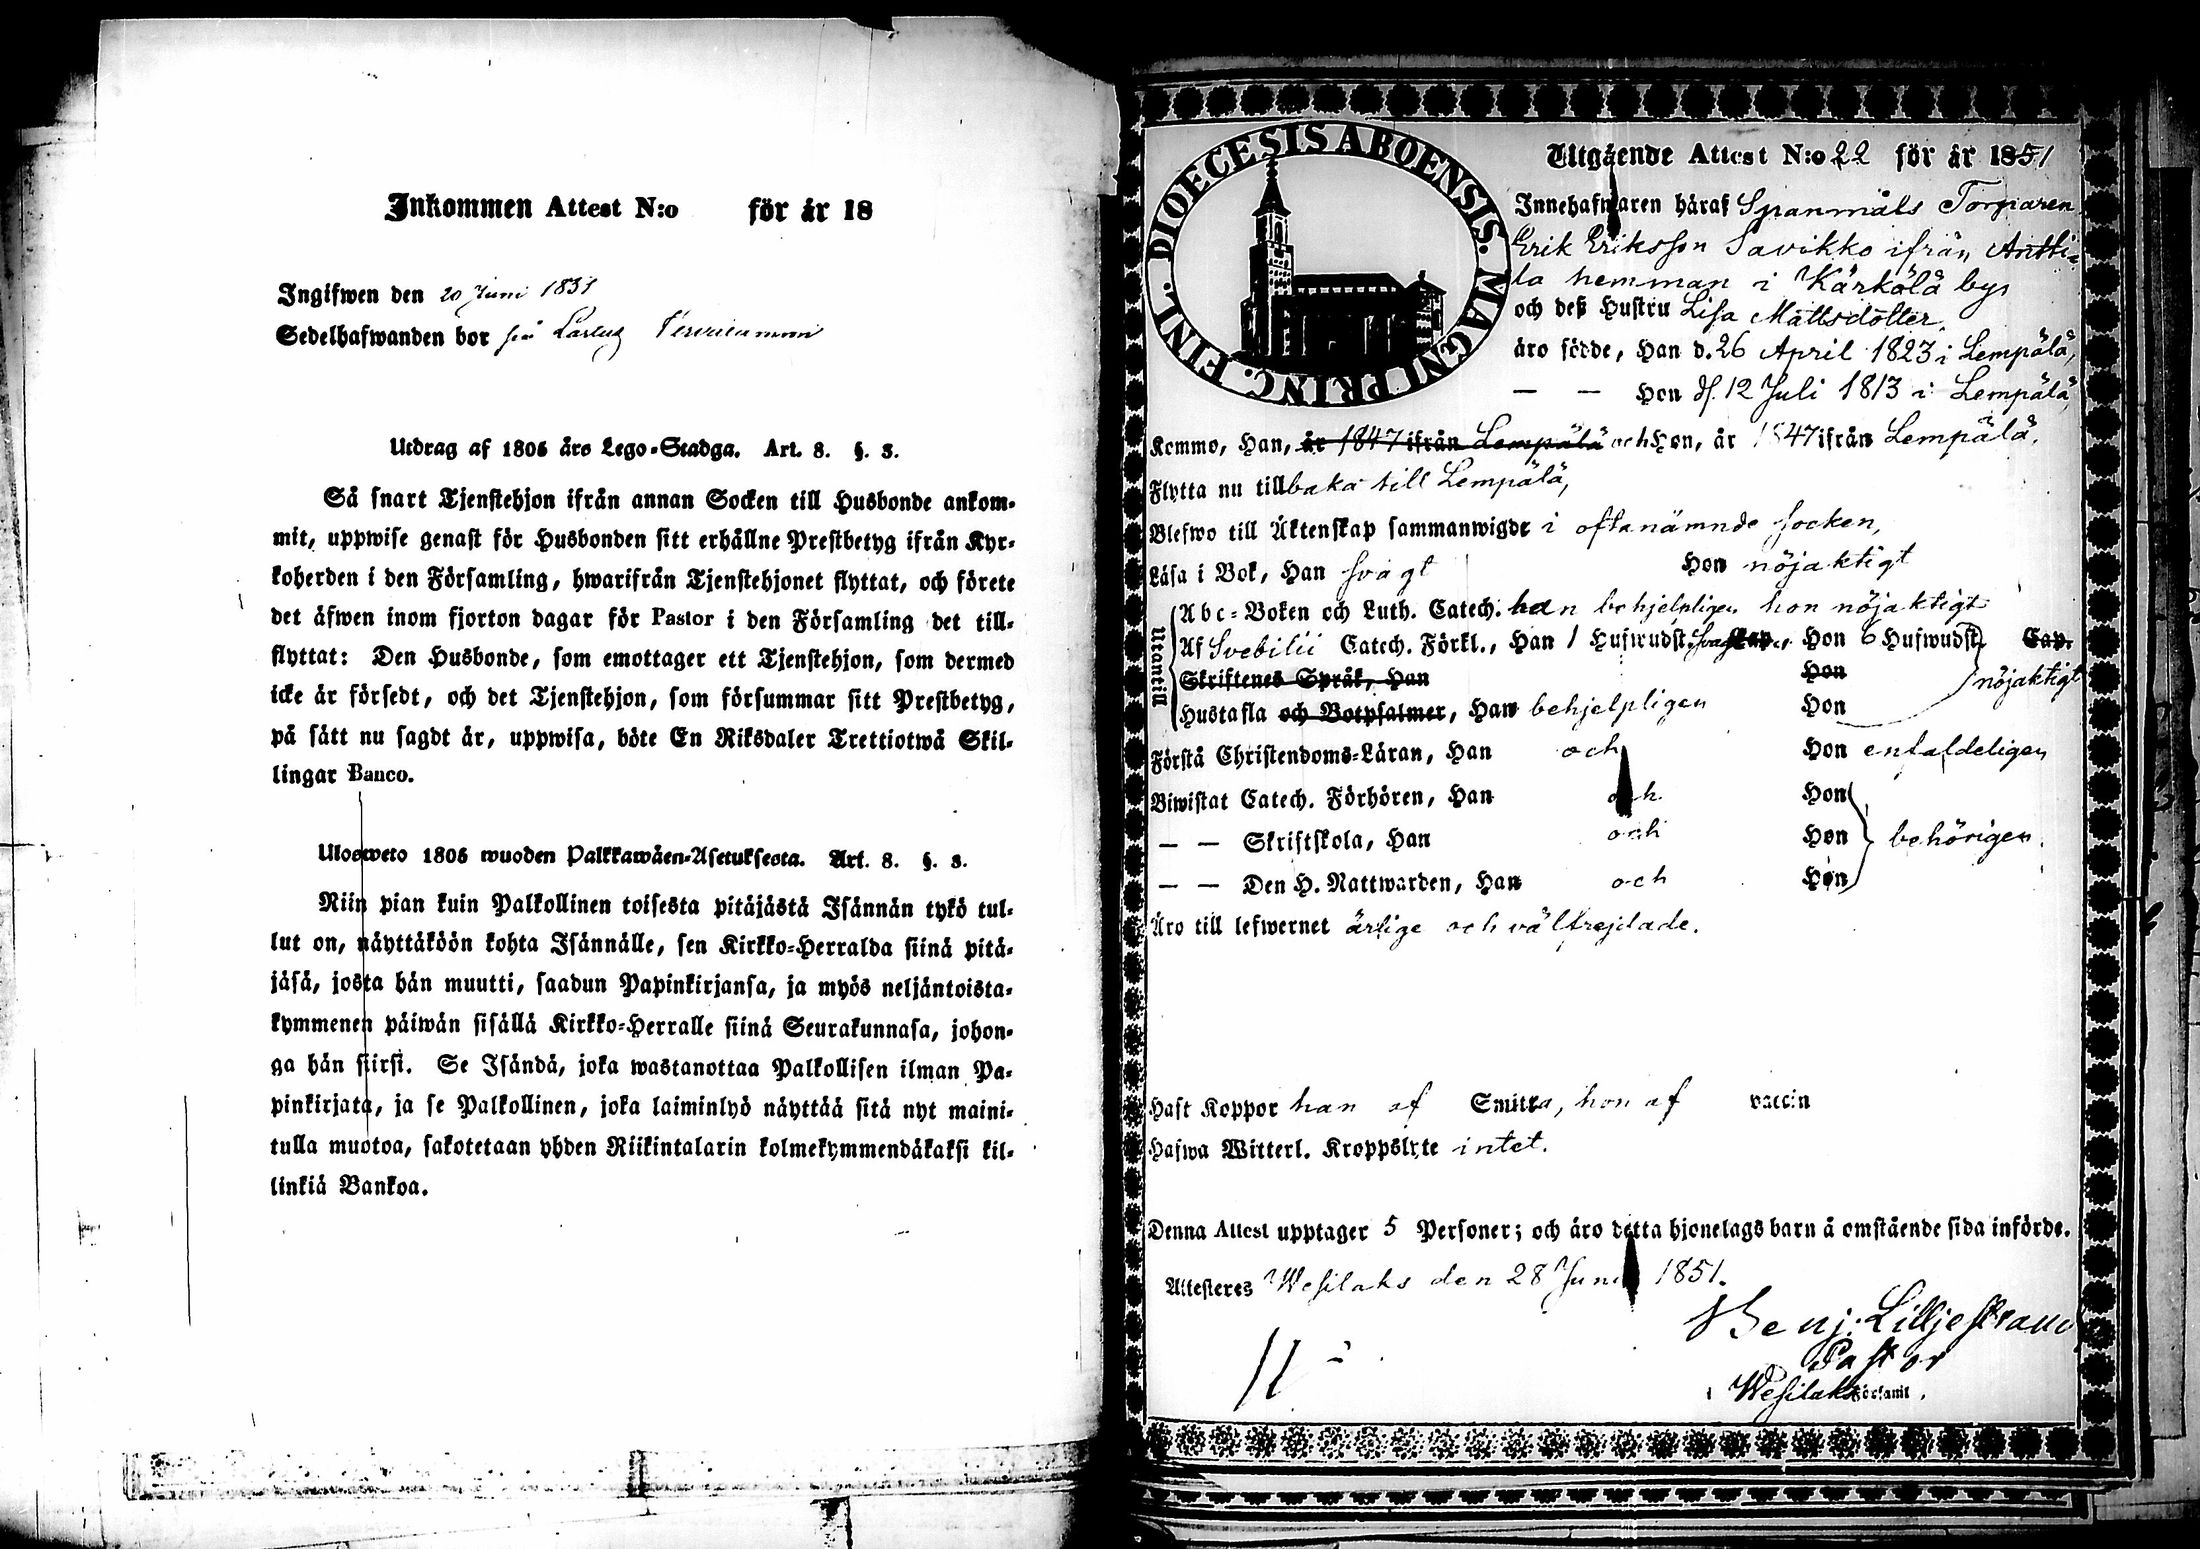 Inkommen Attest N:o för år 18
Ingifwen den 20 Juni 1831
Sedelhafwanden bor på
Utdrag af 1805 års Lego-Stadga. Art. 8. §. 3.
Så snart Tjenstehjon ifrån annan Socken till Husbonde ankom-
mit, uppwise genast för Husbonden sitt erhållne Prestbetyg ifrån Kyr-
koherden i den Församling, hwarifrån Tjenstehjonet flyttat, och förete
det äfwen inom fjorton dagar för Pastor i den Församling det till-
flyttat: Den Husbonde, som emottager ett Tjenstehjon, som dermed
icke är försedt, och det Tjenstehjon, som försummar sitt Prestbetyg,
på sätt nu sagdt är, uppwisa, böte En Riksdaler Trettiotwå Skil-
lingar Banco.
Ulosweto 1805 wuoden Palkkawäen-Asetuksesta. Art. 8. §. 3.
Niin pian kuin Palkollinen toisesta pitäjästä Isännän tykö tul-
lut on, näyttäköön kohta Isännälle, sen Kirkko-Herralda siinä pitä-
jäsä, josta hän muutti, saadun Papinkirjansa, ja myös neljäntoista-
kymmenen päiwän sisällä Kirkko-Herralle siinä Seurakunnasa, johon-
ga hän siirsi. Se Isändä, joka wastanottaa Palkollisen ilman Pa-
pinkirjata, ja se Palkollinen, joka laiminlyö näyttää sitä nyt maini-
tulla muotoa, sakotetaan yhden Riikintalarin kolmekymmendäkaksi kil-
linkiä Bankoa.
DIOECESIS ABOENSIS. MAGNI PRINC. FINL.
Utgående Attest N:o 22 för år 1851
Innehafwaren häraf Spanmåls Torparen
Erik Eriksson Savikko ifrån Antti-
la hemman i Kärkölä by
och deß Hustru Lisa Mattsdotter,
äro födde, Han d. 26 April 1823 i Lempälä,
— — Hon d. 12 Juli 1813 i Lempälä,
Kommo, Han, år 1847 ifrån Lempälä och Hon, år 1847 ifrån Lempälä,
Flytta nu tillbaka till Lempälä,
Blefwo till Äktenskap sammanwigde i oftanämnde socken,
Läsa i Bok, Han svagt Hon nöjaktigt
Utantill
Abc-Boken och Luth. Catech. han behjelpligen hon nöjaktigt
Af Svebilii Catech. Förkl., Han 1 Hufwudst. Hon 6 Hufwudst. Cap.
Skriftenes Språk, Han Hon nöjaktigt
Hustafla och Botpsalmer, Han behjelpligen Hon
Förstå Christendoms-Läran, Han och Hon enfaldeligen
Biwistat Catech. Förhören, Han och Hon
— — Skriftskola, Han och Hon behörigen.
— — Den H. Nattwarden, Han och Hon
Äro till lefwernet ärlige och välfrejdade.
Haft Koppor han af Smitta, hon af vaccin
Hafwa Witterl. Kroppslyte intet.
Denna Attest upptager 5 Personer; och äro detta hjonelags barn å omstående sida införde.
Attesteres Wesilaks den 28 Juni 1851.
Benj. Lilljestrand
Pastor
i Wesilaks Församl.